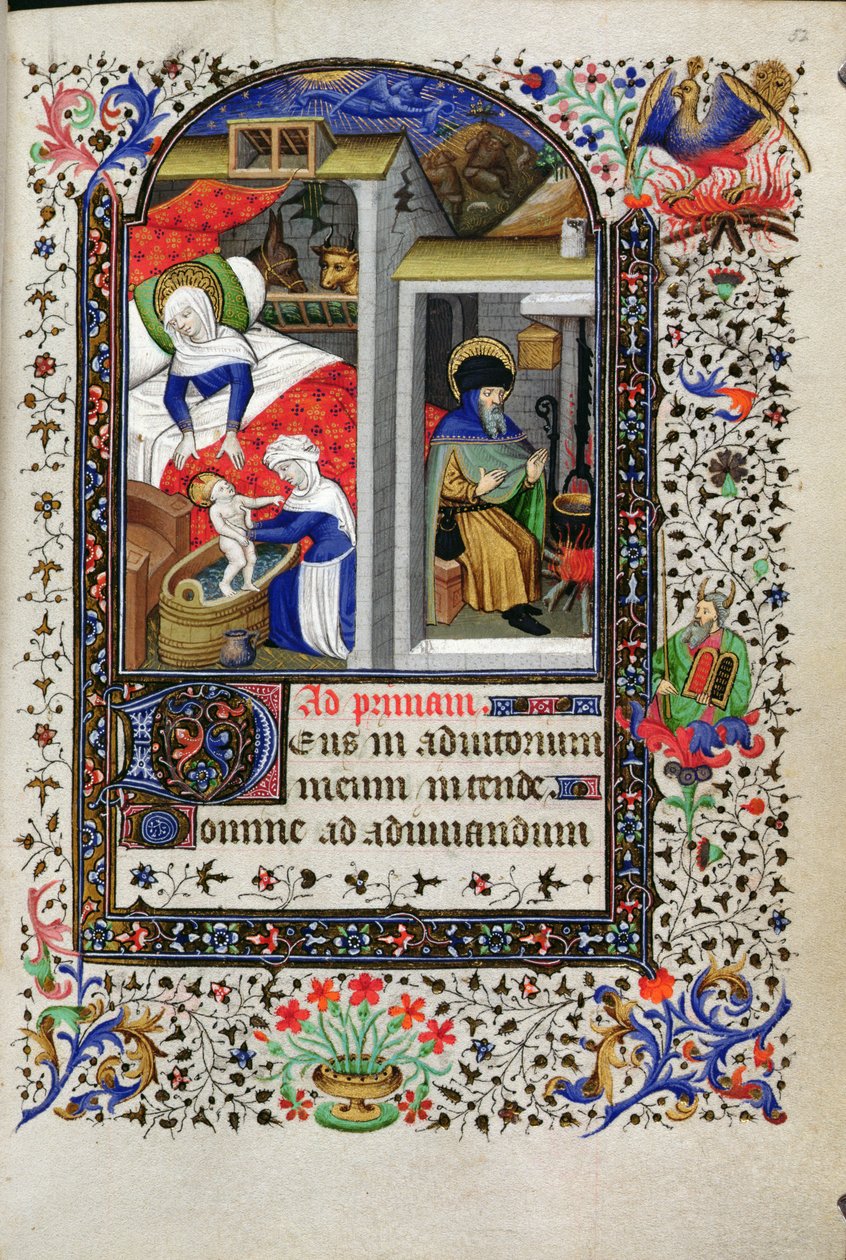 52
Ad primam.
Deus in adiutorium
meum intende.
Domine ad adiuuandum